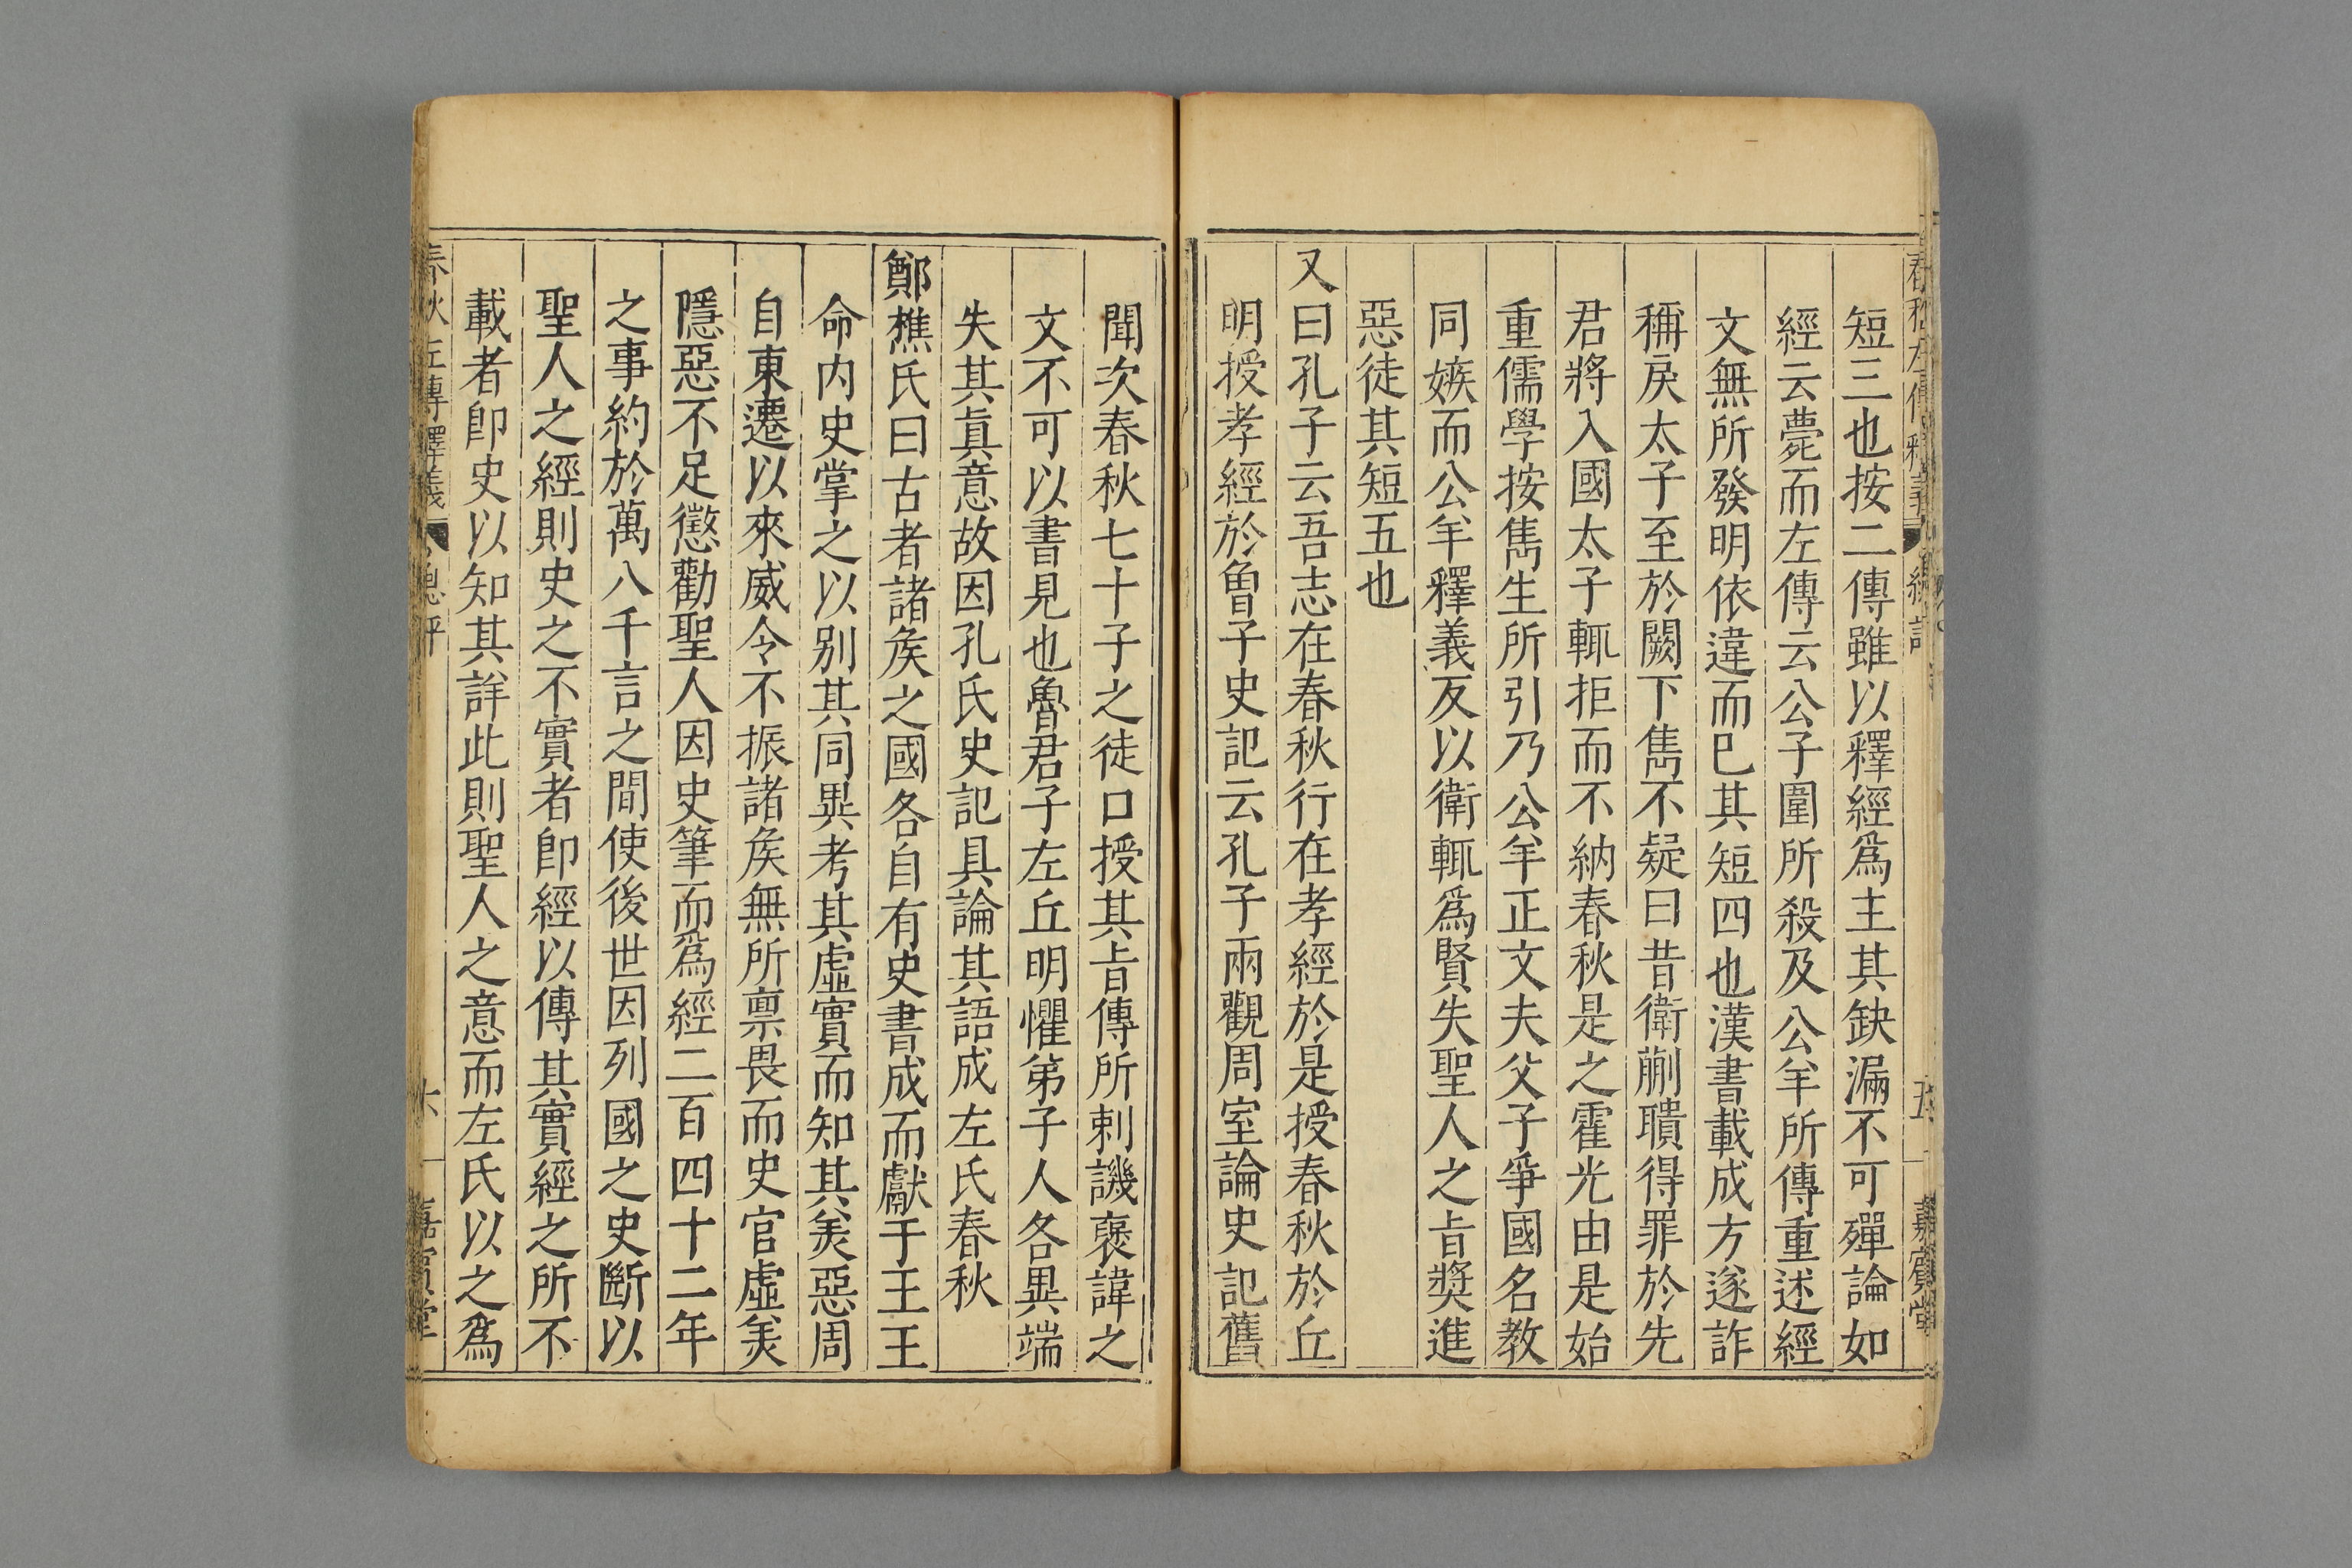 短三也按二傳雖以釋經爲主其缺漏不可殫論如
經云薨而左傳云公子圍所殺及公羊所傳重述經
文無所發明依違而已其短四也漢書載成方遂詐
稱戾太子至於闕下雋不疑曰昔衛蒯聵得罪於先
君將入國太子輒拒而不納春秋是之霍光由是始
重儒學按雋生所引乃公羊正文夫父子爭國名教
同嫉而公羊釋義反以衛輒爲賢失聖人之旨奬進
惡徒其短五也
又曰孔子云吾志在春秋行在孝經於是授春秋於丘
明授孝經於魯子史記云孔子兩觀周室論史記舊
聞次春秋七十子之徒口授其旨傳所刺譏褒諱之
文不可以書見也魯君子左丘明懼弟子人各異端
失其眞意故因孔氏史記具論其語成左氏春秋
鄭樵氏曰古者諸矦之國各自有史書成而獻于王王
命内史掌之以别其同異考其虛實而知其美惡周
自東遷以來威令不振諸矦無所禀畏而史官虛美
隱惡不足懲勸聖人因史筆而爲經二百四十二年
之事約於萬八千言之間使後世因列國之史斷以
聖人之經則史之不實者卽經以傳其實經之所不
載者卽史以知其詳此則聖人之意而左氏以之爲
春秋左傳釋義
總評
六
嘉賓堂